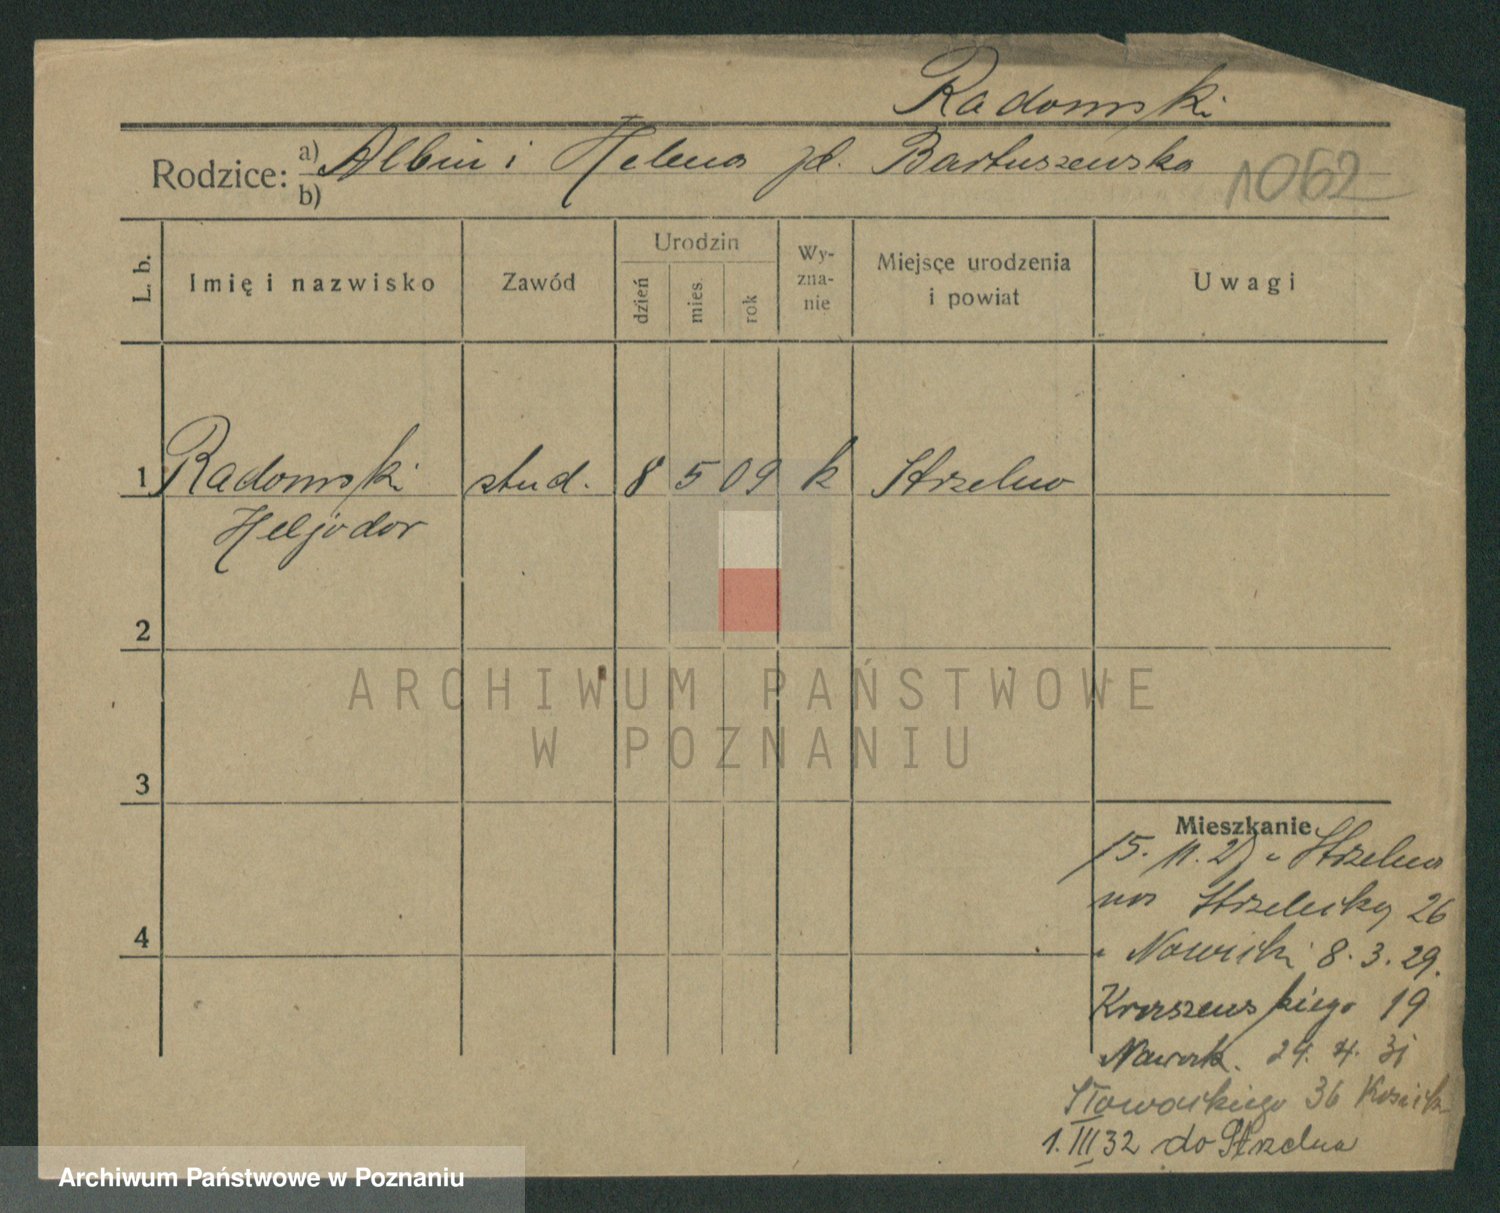 Radomski
Rodzice: a) Albin i Helena zd. Bartuszewska
b)
1062
L. b.
Imię i nazwisko
Zawód
Urodzin
dzień
mies.
rok
Wy-
zna-
nie
Miejsce urodzenia
i powiat
Uwagi
1 Radomski stud. 8 5 09 k Strzelno
Heljodor
2
3
4
Mieszkanie
15. 11. 27 z Strzelna
na Strzelecką 26
Nowicki 8. 3. 29.
Kraszewskiego 19
Nawrk. 24. 4. 31
Słowackiego 36
1. III 32 do Strzelna
ARCHIWUM PAŃSTWOWE
W POZNANIU
Archiwum Państwowe w Poznaniu